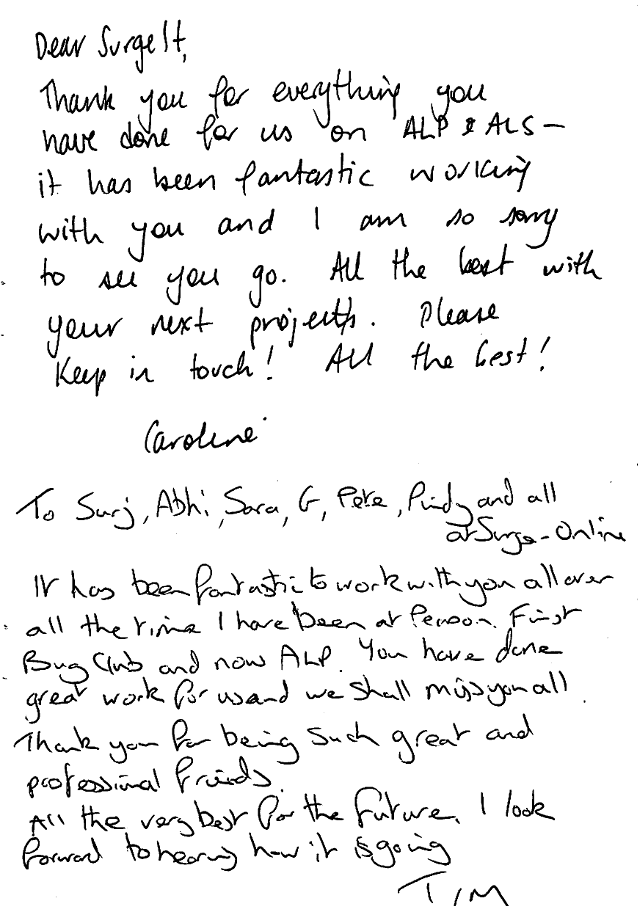 Dear Surge It,
Thank you for everything you
have done for us on ALP & ALS –
it has been fantastic working
with you and I am so sorry
to see you go. All the best with
your next projects. Please
keep in touch! All the best!
Caroline
To Surj, Abhi, Sara, G, Pete, Pindy and all
at Surge-Online
It has been fantastic to work with you all over
all the time I have been at Pearson. First
Bug Club and now ALP. You have done
great work for us and we shall miss you all.
Thank you for being such great and
professional friends.
All the very best for the future. I look
forward to hearing how it is going
Tim